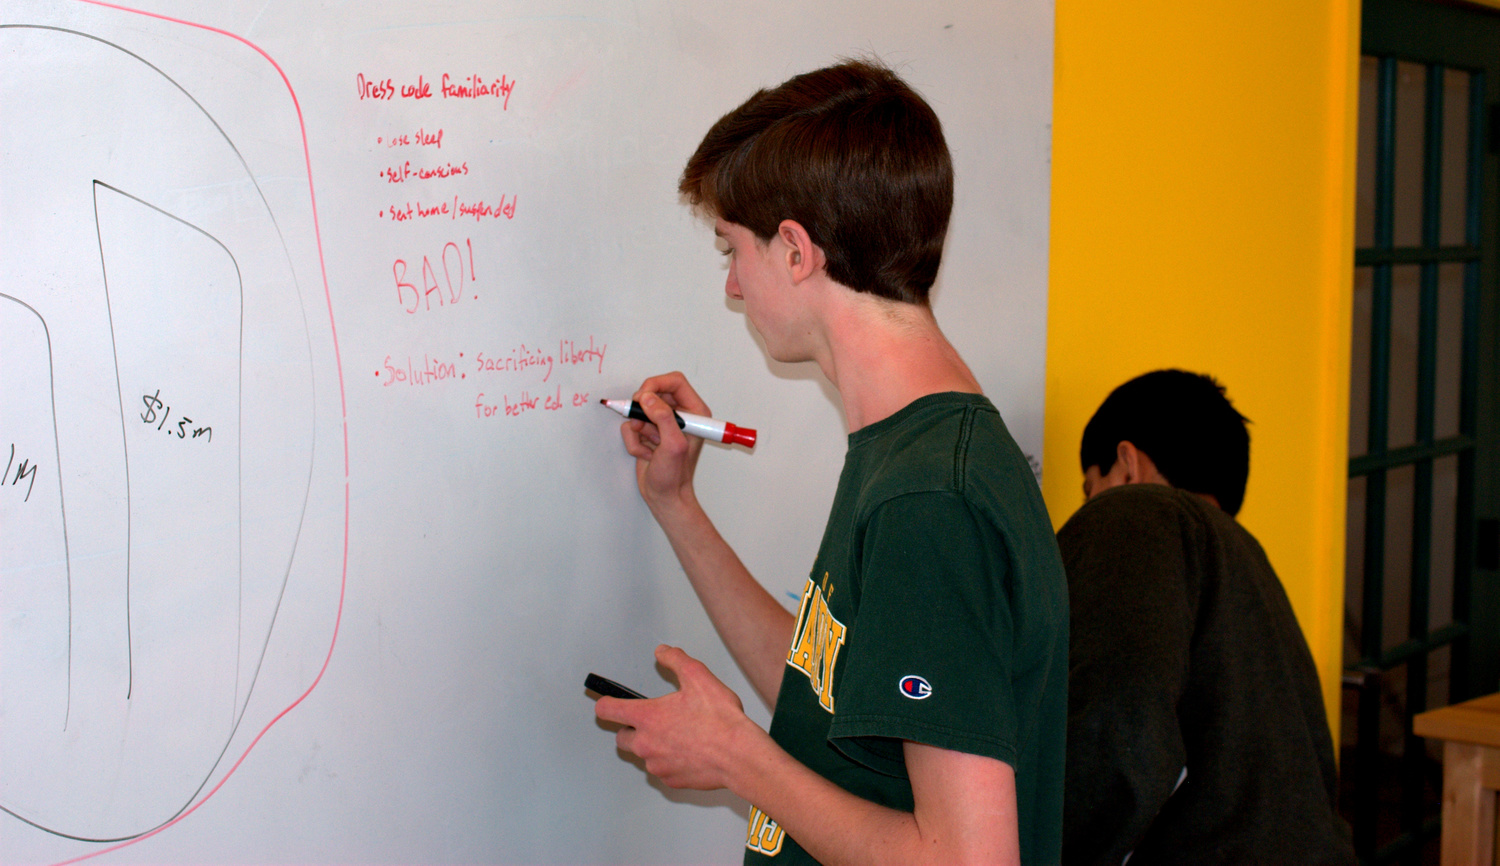 Dress code familiarity
• Lose sleep
• Self-conscious
• Sent home/suspended
BAD!
• Solution: sacrificing liberty
for better ed. ex
$1.5m
1M